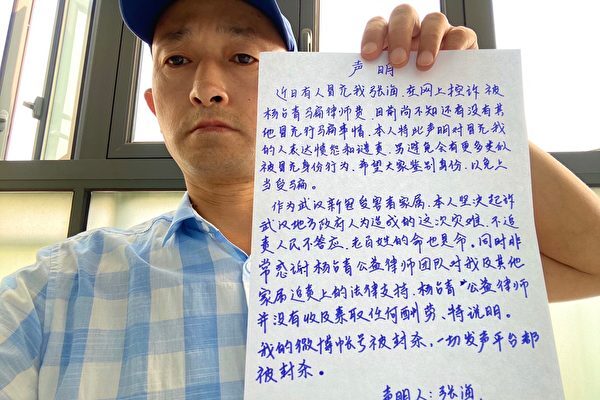 声明
近日有人冒充我张海,在网上控诉被
杨占青骗律师费,目前尚不知还有没有其
他冒充行骗事情。本人特此声明对冒充我
的人表达愤慨和谴责。为避免会有更多类似
被冒充身份行为,希望大家鉴别身份,以免上
当受骗。
作为武汉新冠受害者家属,本人坚决起诉
武汉地方政府人为造成的这次灾难,不追
责人民不答应,老百姓的命也是命。同时非
常感谢杨占青公益律师团队对我及其他
家属追责上的法律支持,杨占青"公益律师
并没有收及索取任何酬劳。特说明。
我的微博帐号被封杀,一切发声平台都
被封杀。
声明人:张海